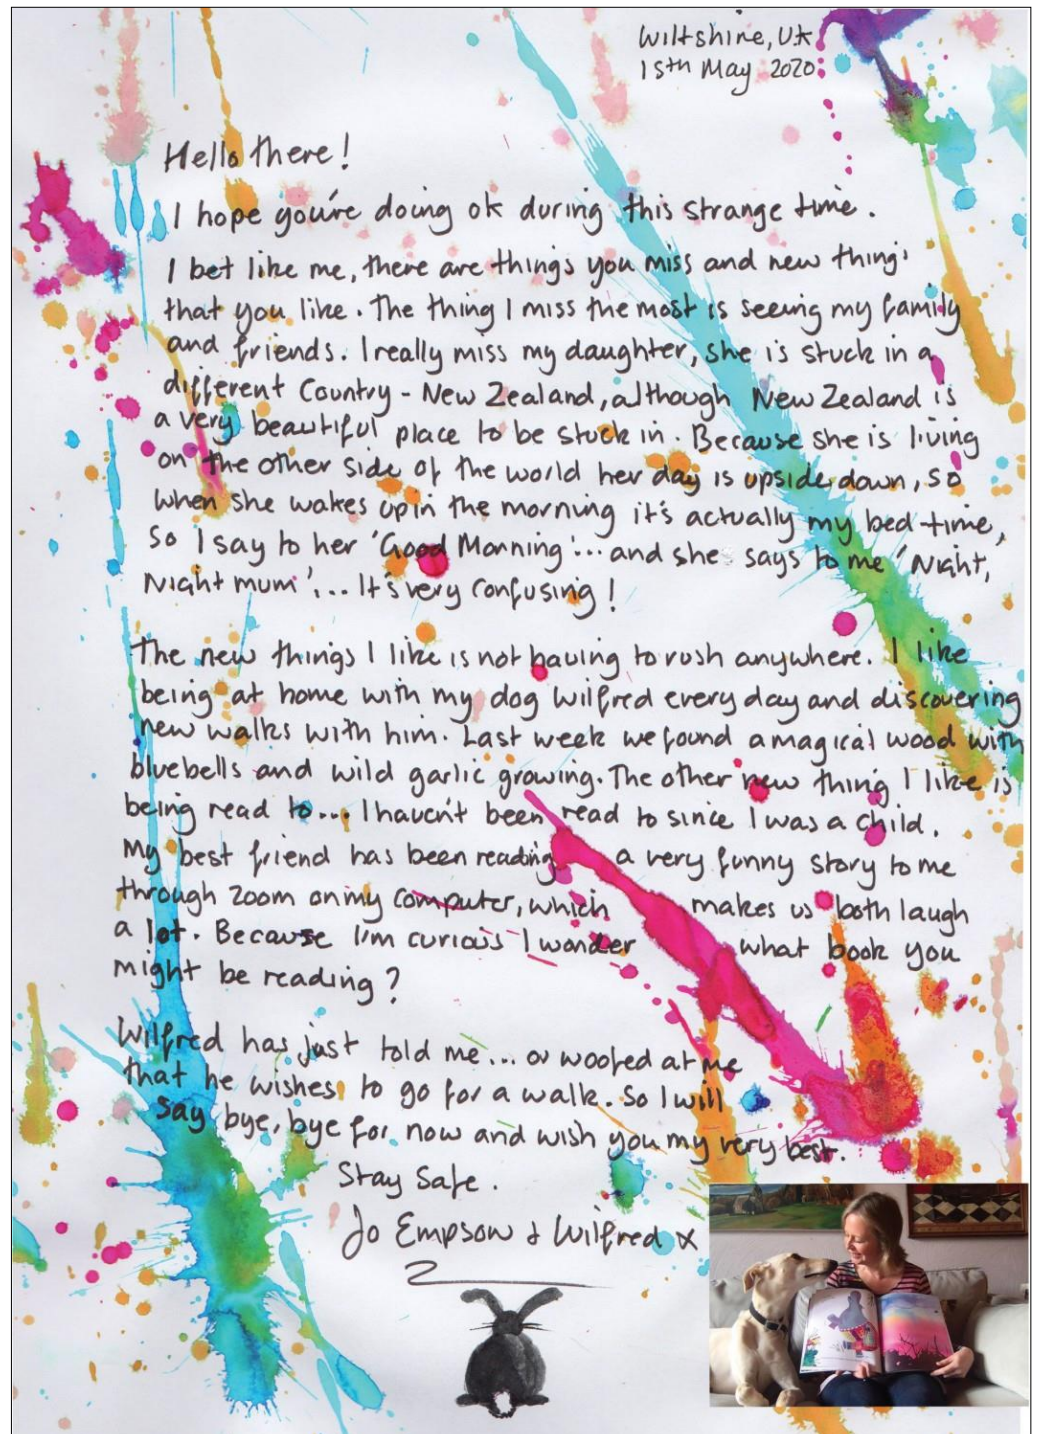 Wiltshire, UK
15th May 2020
Hello there!
I hope you're doing ok during this strange time.
I bet like me, there are things you miss and new things
that you like. The thing I miss the most is seeing my family
and friends. I really miss my daughter, she is stuck in a
different Country - New Zealand, although New Zealand is
a very beautiful place to be stuck in. Because she is living
on the other side of the world her day is upside down, so
when she wakes up in the morning it's actually my bed time,
So I say to her 'Good Morning'... and she says to me 'Night,
Night mum'... It's very confusing!
The new things I like is not having to rush anywhere. I like
being at home with my dog Wilfred every day and discovering
new walks with him. Last week we found a magical wood with
bluebells and wild garlic growing. The other new thing I like is
being read to... I haven't been read to since I was a child.
My best friend has been reading a very funny story to me
through zoom on my computer, which makes us both laugh
a lot. Because I'm curious I wonder what book you
might be reading?
Wilfred has just told me... or woofed at me
that he wishes to go for a walk. So I will
say bye, bye for now and wish you my very best.
Stay Safe.
Jo Empson & Wilfred x